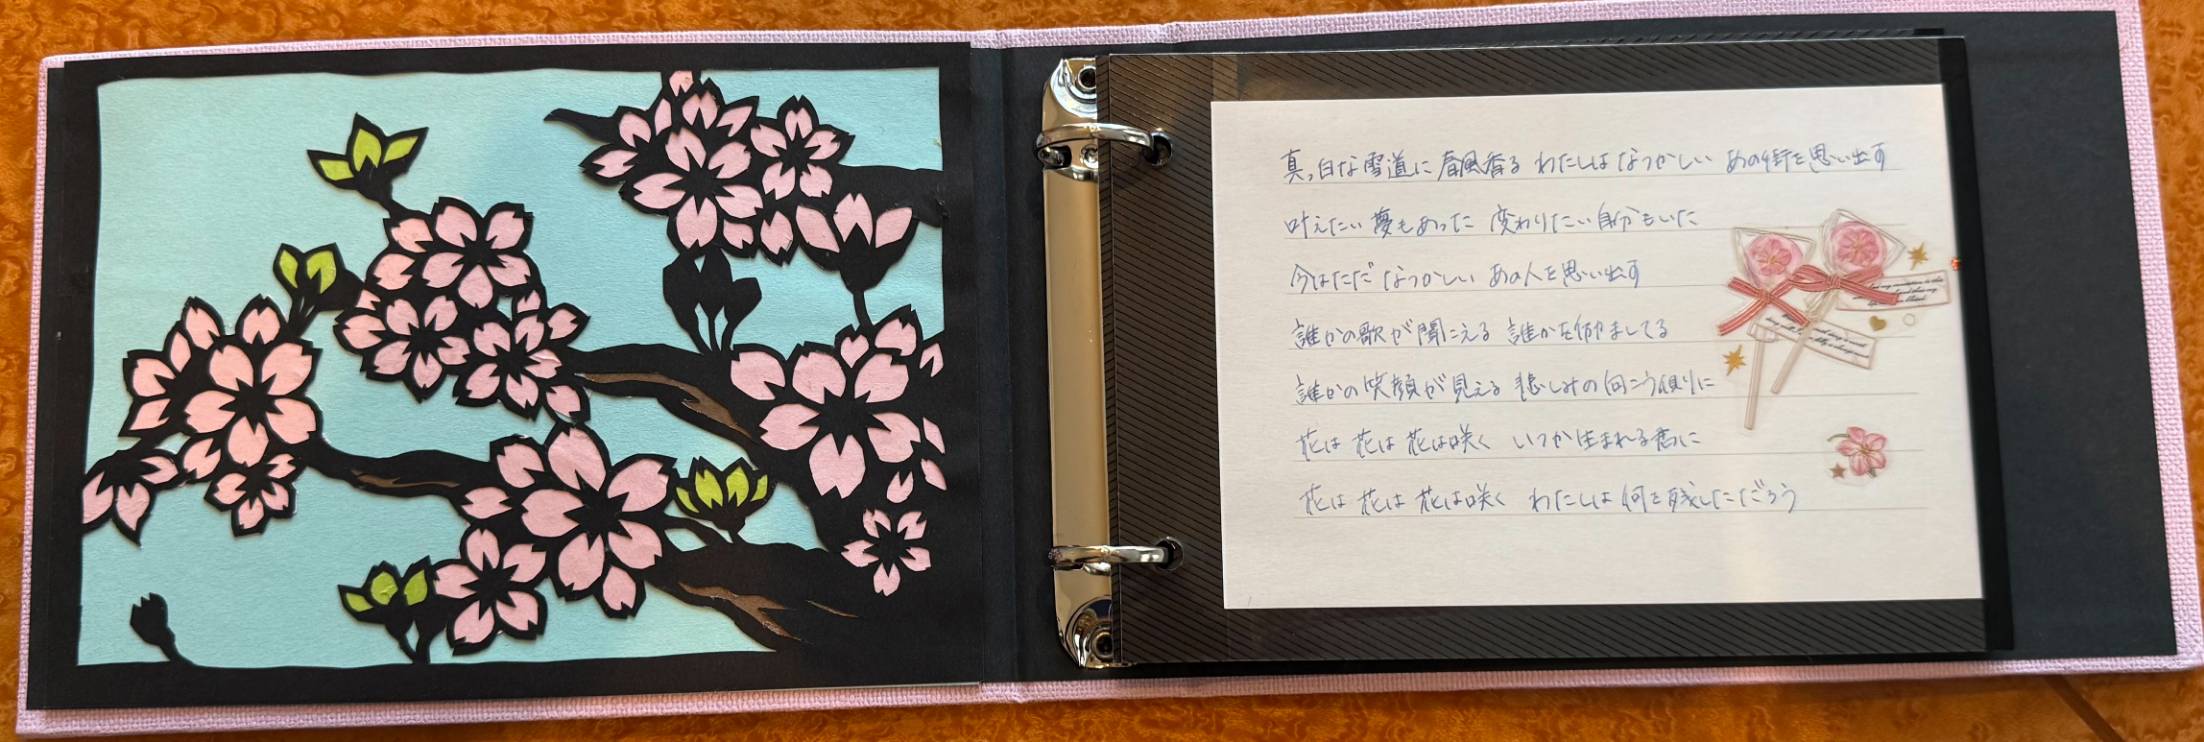 真っ白な雪道に 春風香る わたしは なつかしい あの街を思い出す
叶えたい夢もあった 変わりたい自分もいた
今はただ なつかしい あの人を思い出す
誰かの歌が聞こえる 誰かを励ましてる
誰かの笑顔が見える 悲しみの向こう側に
花は 花は 花は咲く いつか生まれる君に
花は 花は 花は咲く わたしは何を残しただろう